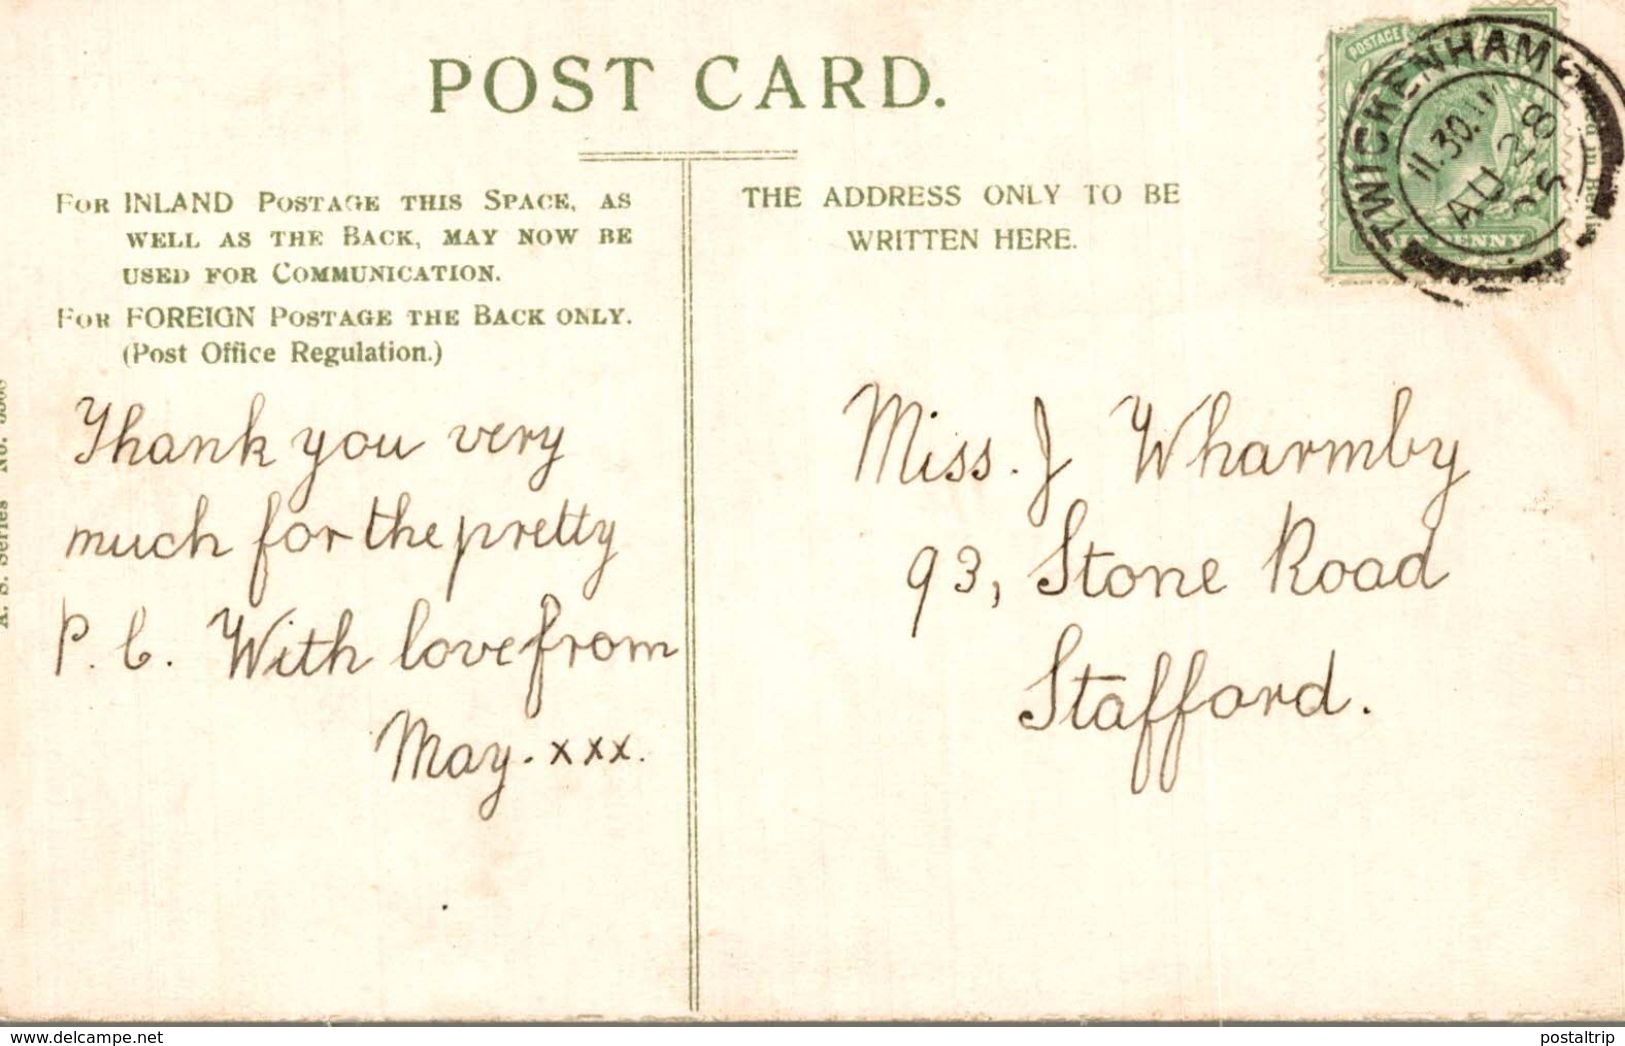 POST CARD.
FOR INLAND POSTAGE THIS SPACE, AS
WELL AS THE BACK, MAY NOW BE
USED FOR COMMUNICATION.
FOR FOREIGN POSTAGE THE BACK ONLY.
(Post Office Regulation.)
THE ADDRESS ONLY TO BE
WRITTEN HERE.
POSTAGE
PENNY
TWICKENHAM
11.30.AM
AU 28
A. S. Series No.
Thank you very
much for the pretty
P. C. With love from
May. xxx.
Miss. J Wharmby
93, Stone Road
Stafford.
www.delcampe.net
postaltrip